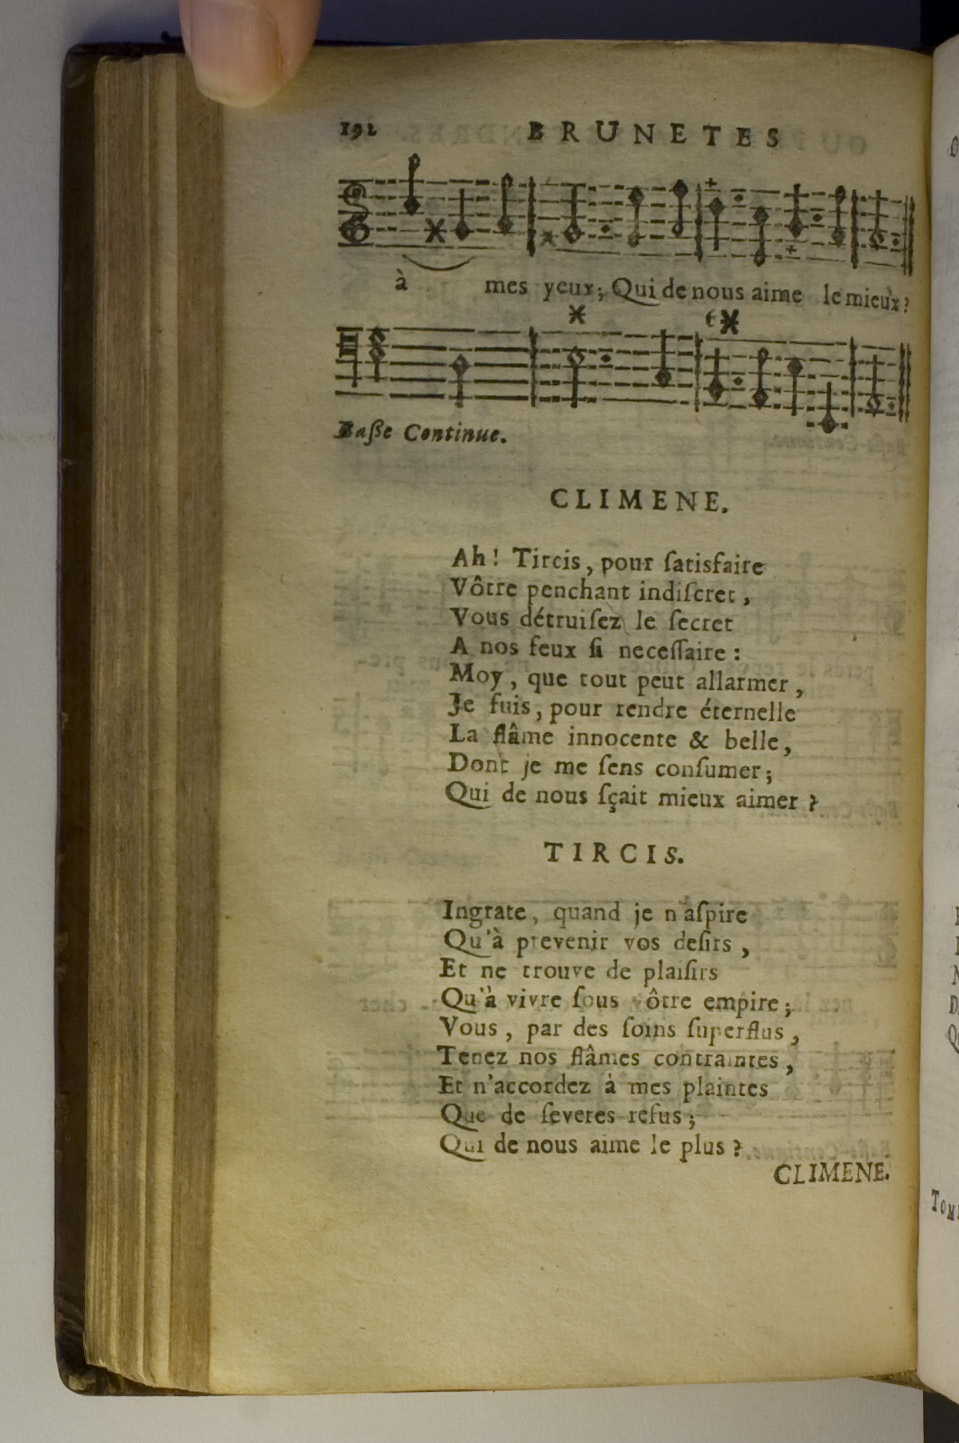 192 BRUNETES
à mes yeux; Qui de nous aime le mieux?
Baſſe Continue.
CLIMENE.
Ah! Tircis, pour ſatisfaire
Vôtre penchant indiſcret,
Vous détruiſez le ſecret
A nos feux ſi neceſſaire:
Moy, que tout peut allarmer,
Je fuis, pour rendre éternelle
La flâme innocente & belle,
Dont je me ſens conſumer;
Qui de nous ſçait mieux aimer?
TIRCIS.
Ingrate, quand je n'aſpire
Qu'à prevenir vos deſirs,
Et ne trouve de plaiſirs
Qu'à vivre ſous vôtre empire;
Vous, par des ſoins ſuperflus,
Tenez nos flâmes contraintes,
Et n'accordez à mes plaintes
Que de ſeveres refus;
Qui de nous aime le plus?
CLIMENE.